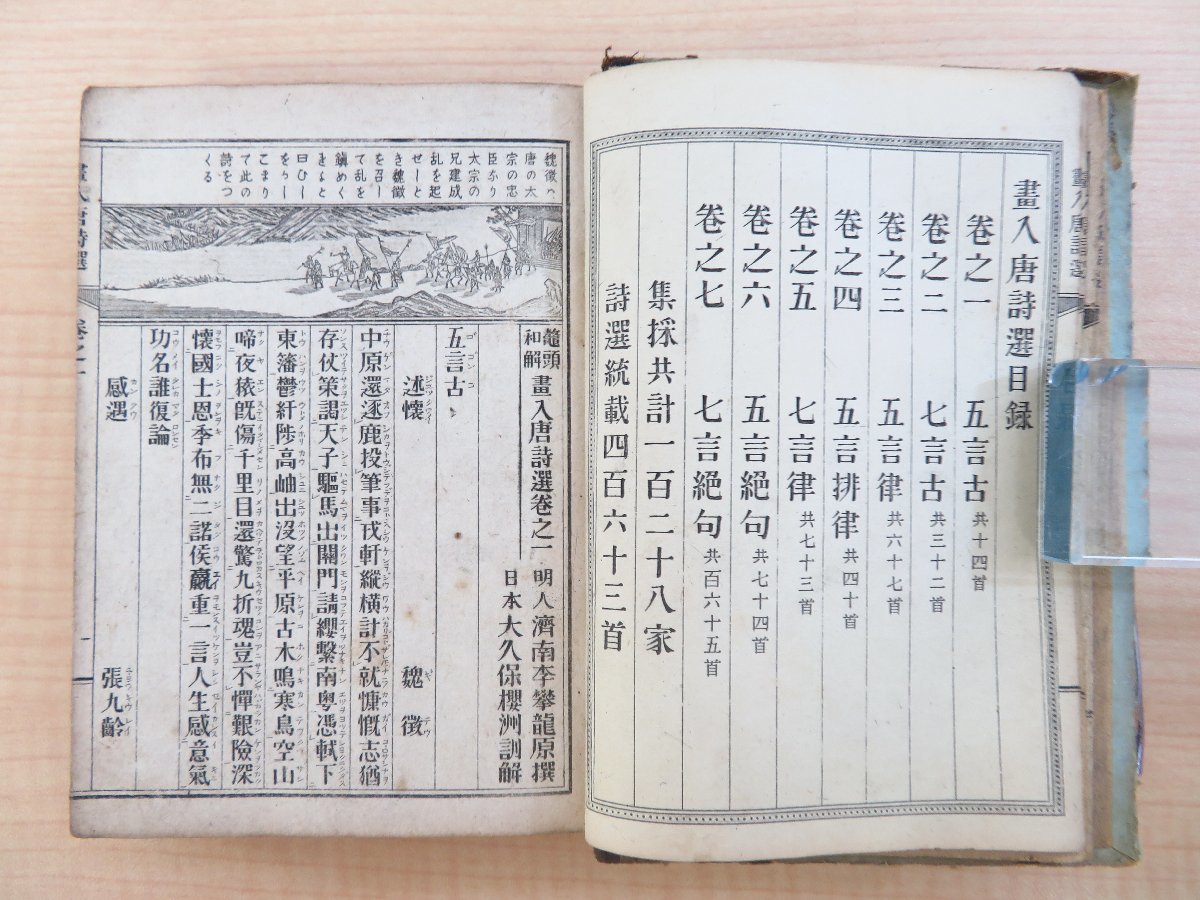 畫入唐詩選目録
卷之一　五言古共十四首
卷之二　七言古共三十二首
卷之三　五言律共六十七首
卷之四　五言排律共四十首
卷之五　七言律共七十三首
卷之六　五言絕句共七十四首
卷之七　七言絕句共百六十五首
集採共計一百二十八家
詩選統載四百六十三首
魏徵ハ
唐の太
宗の忠
臣なり
太宗の
兄建成
乱を起
せーと
き魏徵
を召ー
て乱を
鎭めく
きよと
曰ひー
をゥー
こまり
て此の
詩をつ
くる
鼇頭和解畫入唐詩選卷之一
明人濟南李攀龍原撰
日本大久保櫻洲訓解
五言古
述懷　魏徵
中原還逐鹿投筆事戎軒縱橫計不就慷慨志猶
存仗策謁天子驅馬出關門請纓繫南粤憑軾下
東藩鬱紆陟高岫出沒望平原古木鳴寒鳥空山
啼夜猿既傷千里目還驚九折魂豈不憚艱險深
懷國士恩季布無二諾侯嬴重一言人生感意氣
功名誰復論
感遇　張九齡